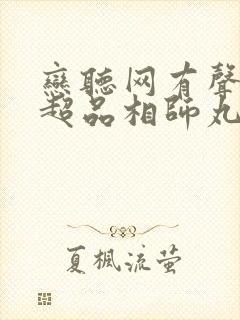 戀聽网有聲
超品相師丸
夏楓流萤